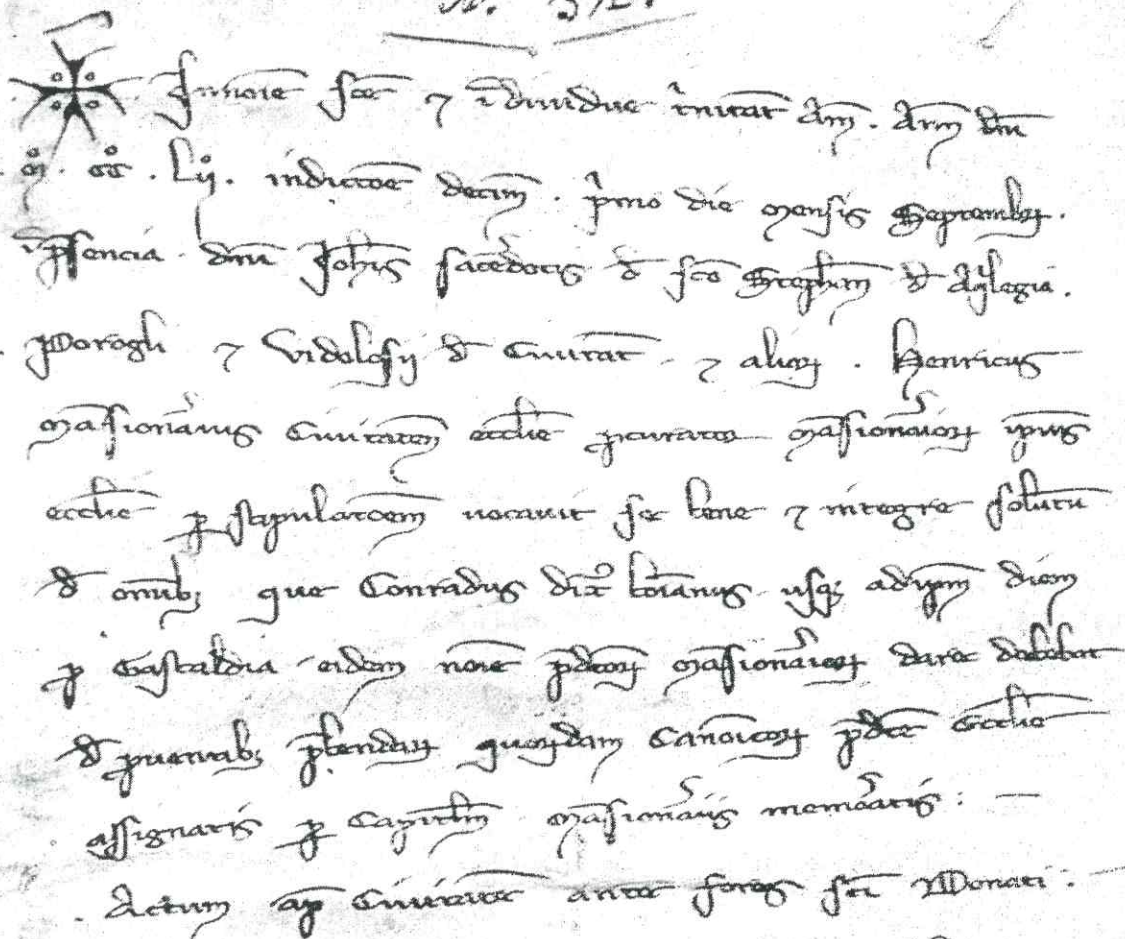 In noīe sc̄e ⁊ īdiuidue t̄nitat̄ Am̄. Ann̄ dn̄i
.M̊. CC̊. Lij. indictōe decim̄. p̍mo die mensis Septembꝝ.
ī p̄sencia. dn̄i Joh̄is sac̄dotis d̄ sc̄o Steph̄m d̄ Aq̍legia.
⁊ d̄ Ciuitat̄. ⁊ alioꝝ. Henricus
māsionāius Ciuitateñ eccl̄ie ꝓcurator māsionāioꝝ ip̄ius
eccl̄ie ꝑ stipulatōem uocauit se bene ⁊ integre solūtū
d̄ om̄ibꝫ que Conradus dc̄t̉ usqꝫ ad ip̄m diem
ꝑ Gastaldia eidem noīe p̄dc̄oꝝ māsionāioꝝ dare debebat
d̄ ꝓuentibꝫ p̄bendaꝝ quoꝝdam Canōicoꝝ p̄dc̄e Eccl̄ie
assignatis ꝑ Capitl̄m māsionāiis memōatis : —
. Actum ap̄ Ciuitatē ante fores sc̄i Donati .